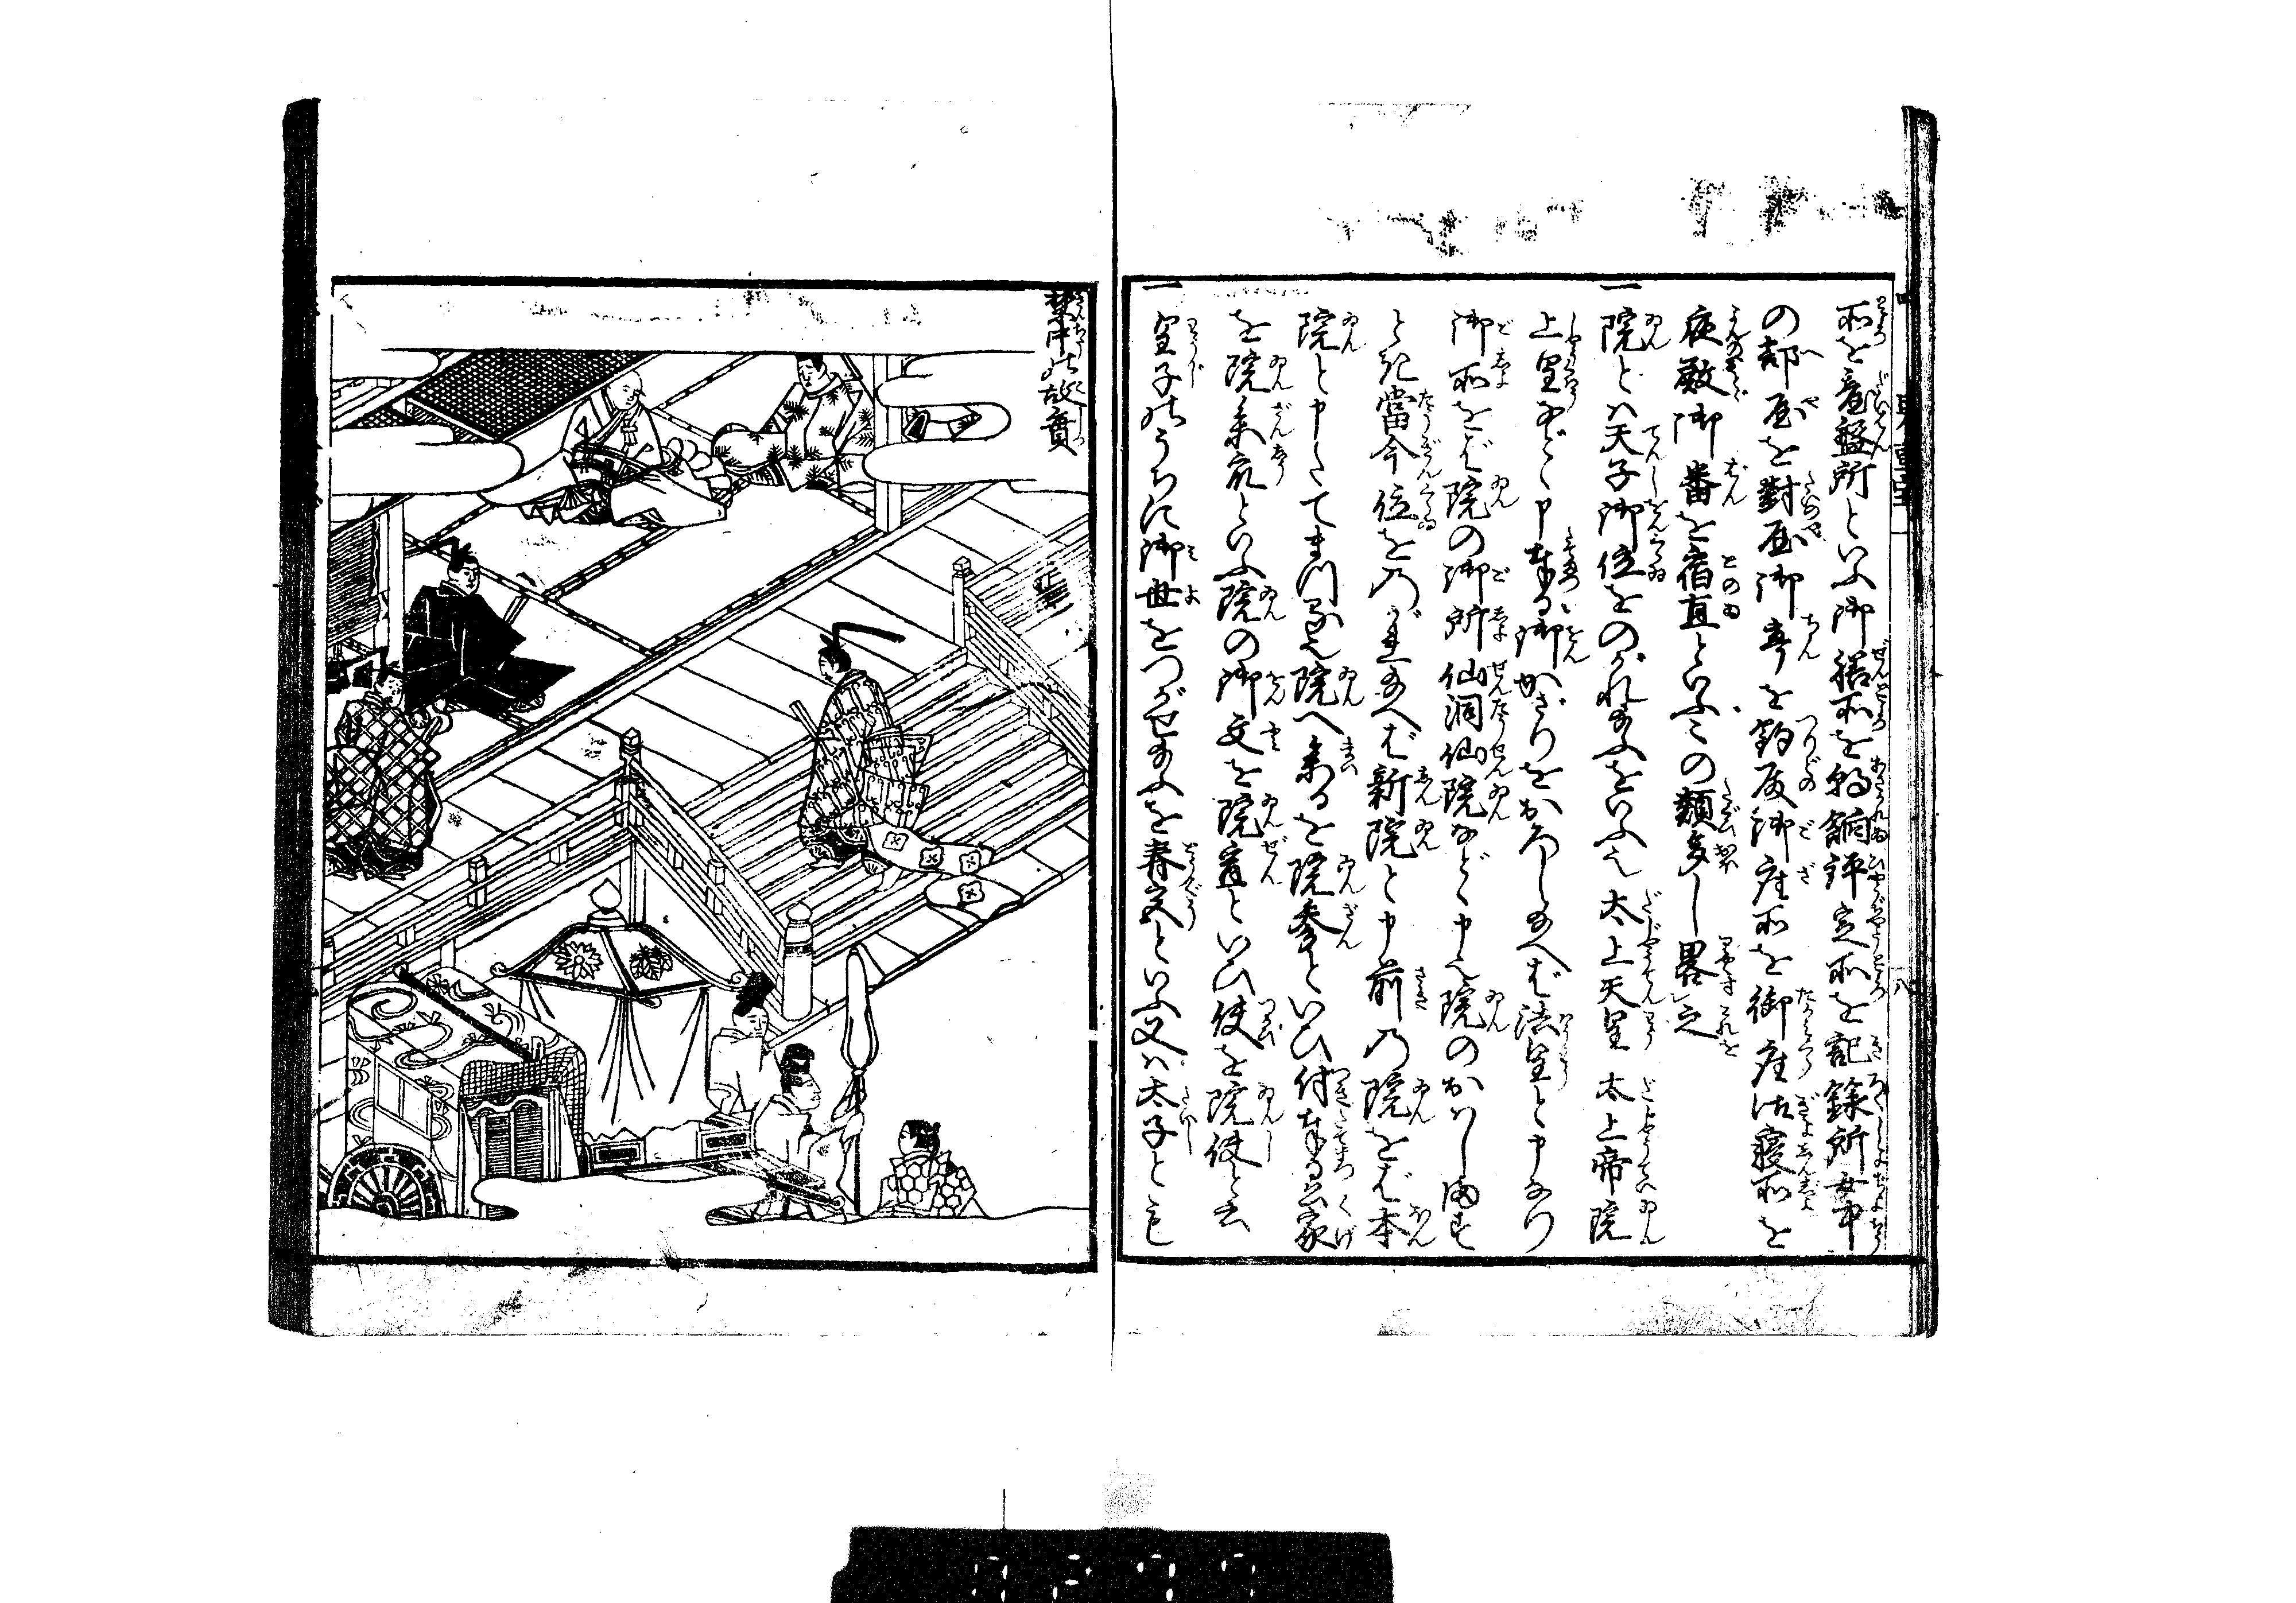 所を臺盤所といふ御膳所を朝餉評定所を記録所女中
の部屋を對屋御亭を釣殿御座所を御座御寝所を
夜殿御番を宿直といふこの類多し畧之
一院とハ天子御位をのがれ給ふをいふ也太上天皇太上帝院
上皇などゝ申奉る御かざりをおろし給へば法皇と申なり
御所をば院の御所仙洞仙院などゝ申也院のおハし満す
とき當今位をのがれ給へば新院と申前の院をば本
院と申したてまつる也院へ参るを院参といひ付奉る公家
を院参衆といふ院の御文を院宣といひ使を院使と云
一皇子のうちに御世をつがせ給ふを春宮といふ又ハ太子とも
八
禁中の故實